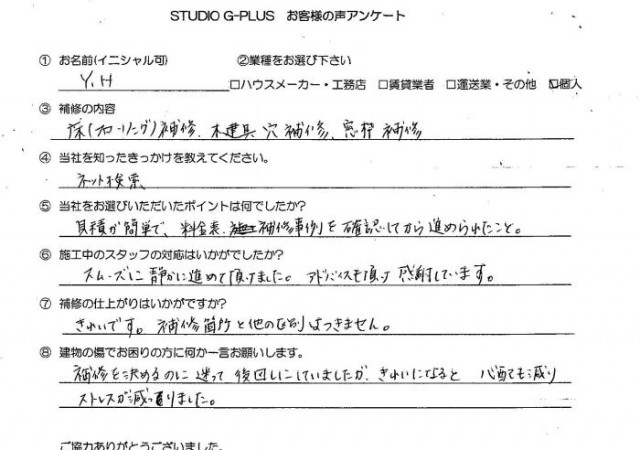 STUDIO G-PLUS お客様の声アンケート
① お名前(イニシャル可) ②業種をお選び下さい
Y.H □ハウスメーカー・工務店 □賃貸業者 □運送業・その他 □個人
③ 補修の内容
床(フローリング)補修、木建具 穴 補修、窓枠 補修
④ 当社を知ったきっかけを教えてください。
ネット検索
⑤ 当社をお選びいただいたポイントは何でしたか?
見積が簡単で、料金表、補修事例を確認してから進められたこと。
⑥ 施工中のスタッフの対応はいかがでしたか?
スムーズに静かに進めて頂けました。アドバイスも頂け 感謝しています。
⑦ 補修の仕上がりはいかがですか?
きれいです。補修箇所と他の区別はつきません。
⑧ 建物の傷でお困りの方に何か一言お願いします。
補修を決めるのに迷って後回しにしていましたが、きれいになると 心配も減り
ストレスが減りました。
ご協力ありがとうございました。